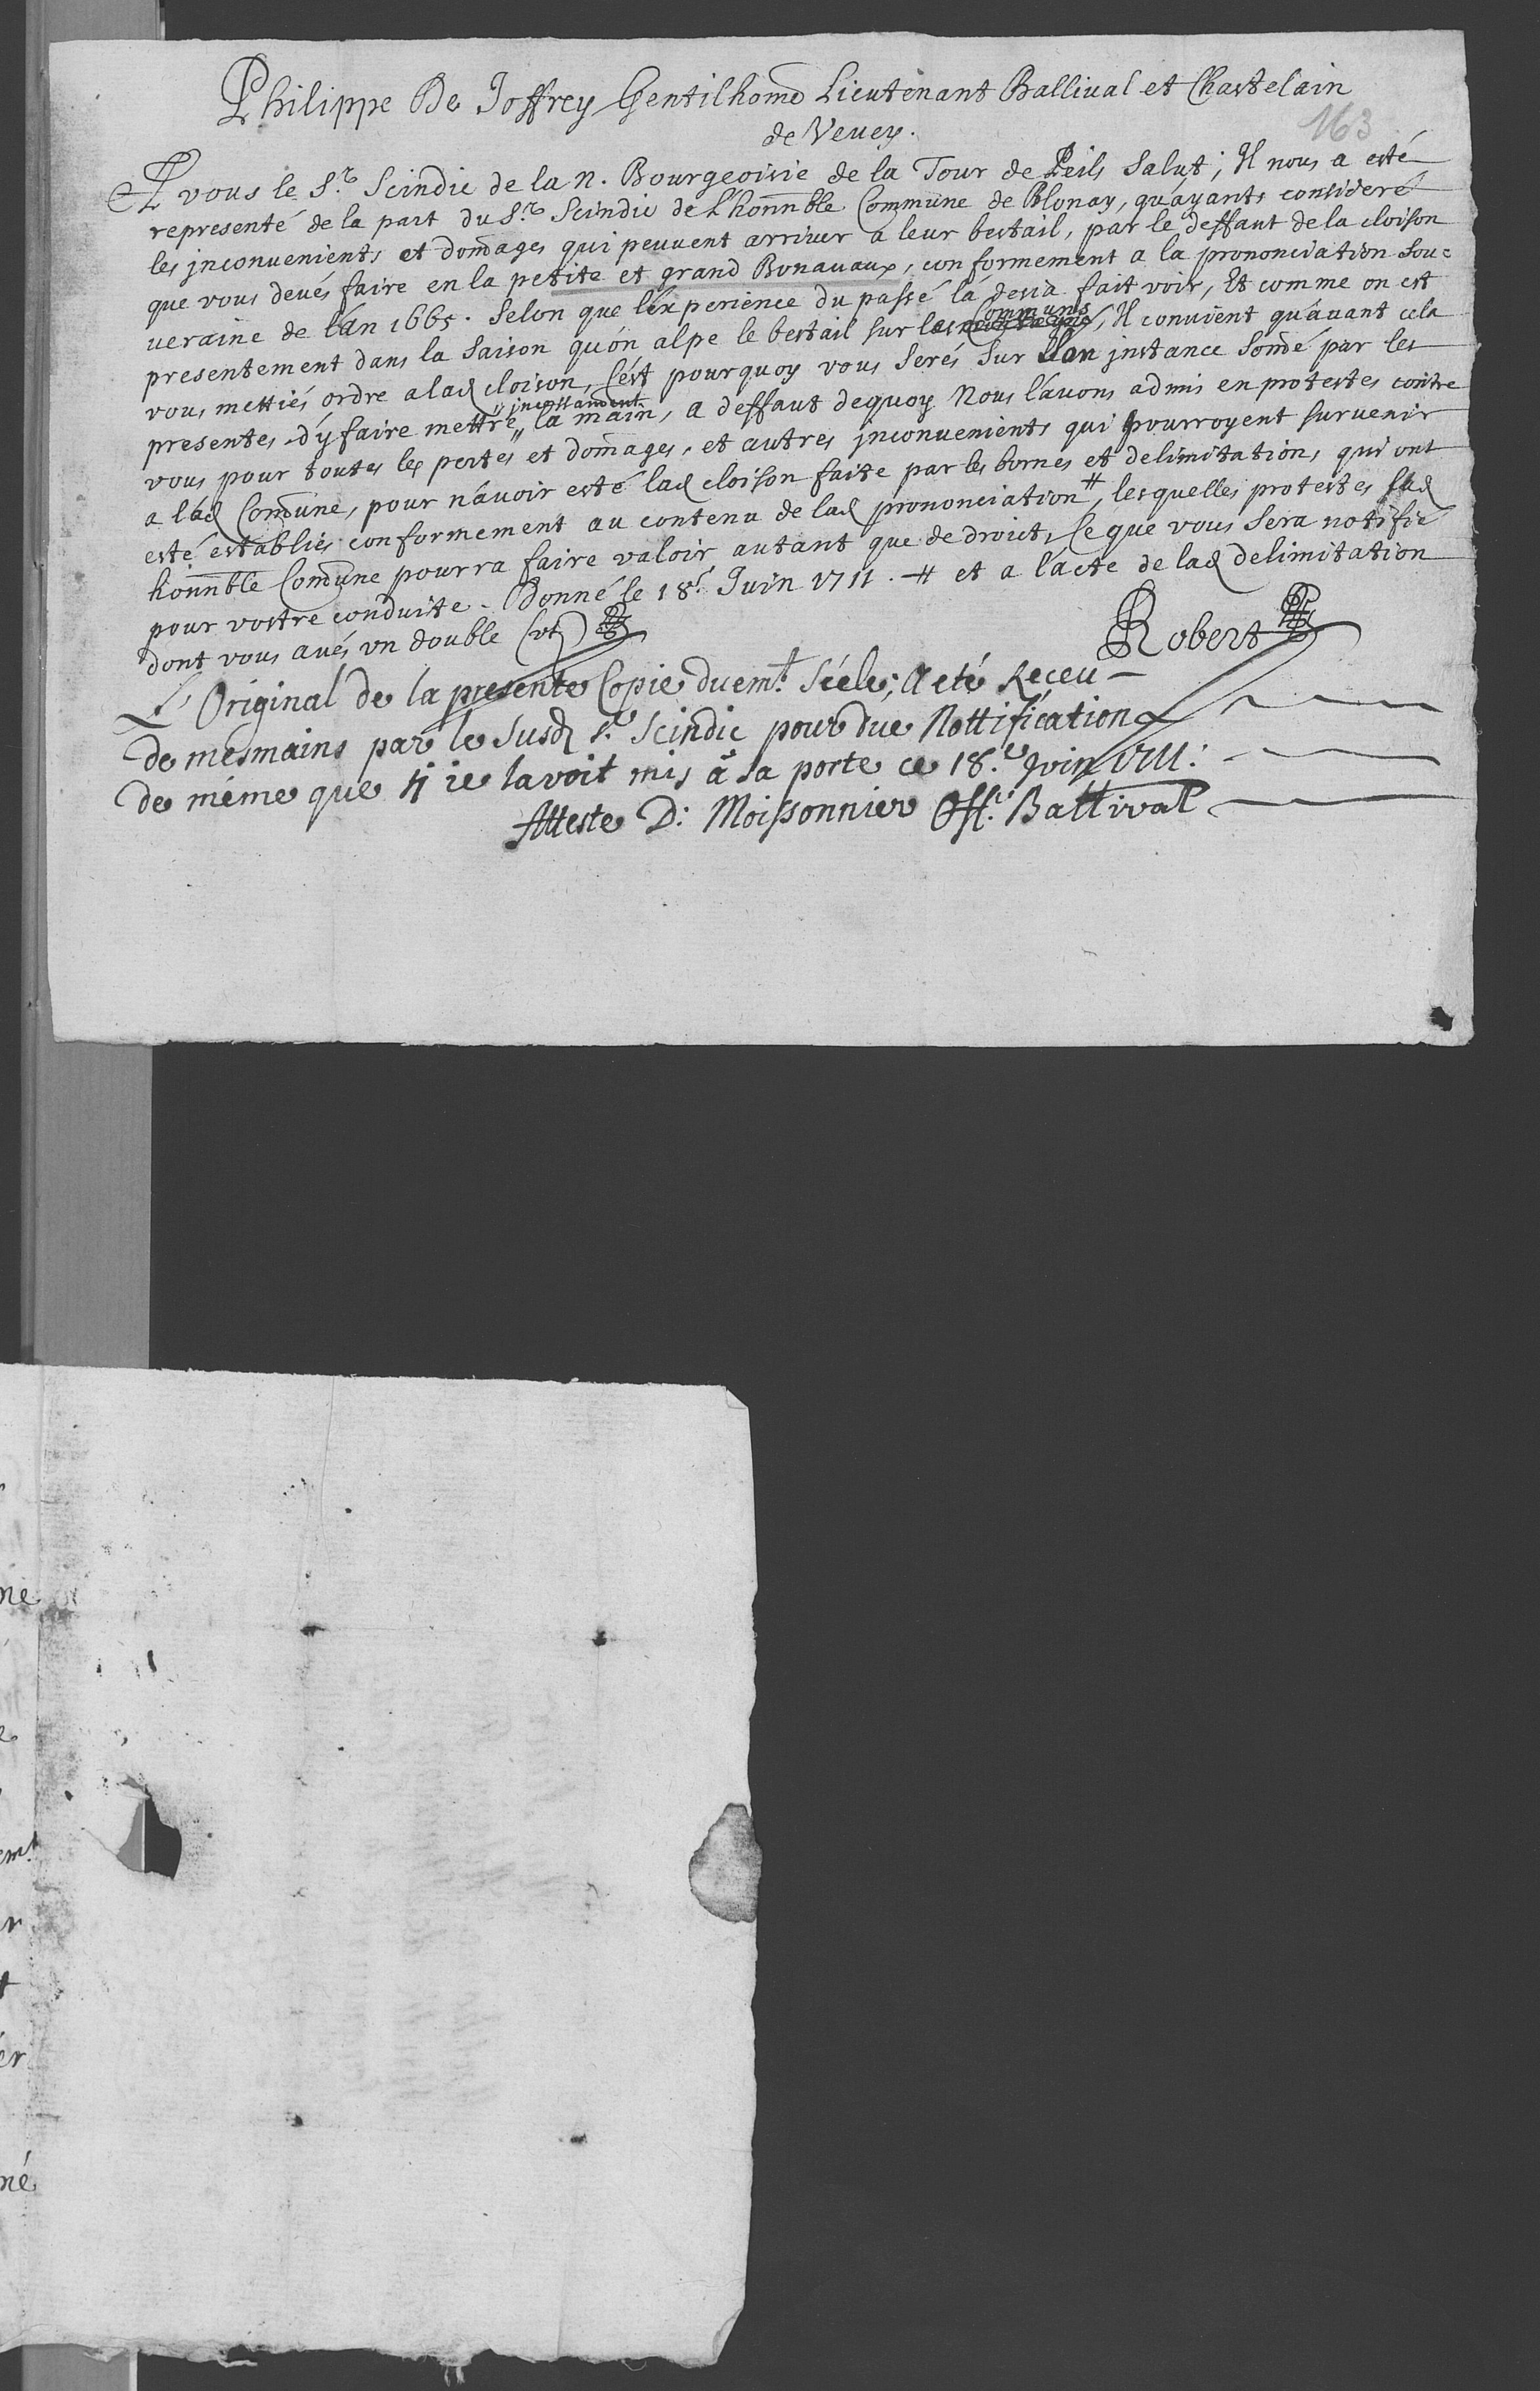 Philippe De Joffrey Gentilhome Lieutenant Ballival et Chastelain
de Vevey.
163
A vous le Sr. Scindic de la N. Bourgeoisie de la Tour de Peils Salut; Il nous a esté
representé de la part du Sr. Scindic de L'honnble Commune de Blonay, qu'ayants consideré
les jnconvenients et domages qui peuvent arriver a leur bestail, par le deffaut de la cloison
que vous devés faire en la petite et grand Bonavaux, conformement a la prononciation Sou=
veraine de l'an 1665. Selon que l'experience du passé la desia fait voir, Et comme on est
presentement dans la Saison qu'on alpe le bestail sur les Communs, Il convient qu'avant cela
vous mettiés ordre a lad cloison, C'est pourquoy vous Serés Sur Son jnstance Somé par les
presentes d'y faire mettre " jncessament " la main, a deffaut dequoy Nous l'avons admis en protestes contre
vous pour toutes les pertes et domages, et autres jnconvenients qui pourroyent survenir
a lad Comune, pour n'avoir esté lad cloison faite par les bornes et delimitation, qui ont
esté establies conformement au contenu de lad prononciation #, lesquelles protestes lad
honnble Comune pourra faire valoir autant que de droict, Ce que vous Sera notifié
pour vostre conduite. Donné le 18e. Juin 1711. # et a l'acte de lad delimitation
dont vous avés un double
Robert
L'Original de la presente Copie duemt. Séelé; A eté Receu
de mes mains par le Susd Sr. Scindic pour düe Nottification
de même que si je lavoit mis à sa porte ce 18.e Juin 1711.
Atteste D: Moissonnier Off. Ballival
ne
emt
r
er
né